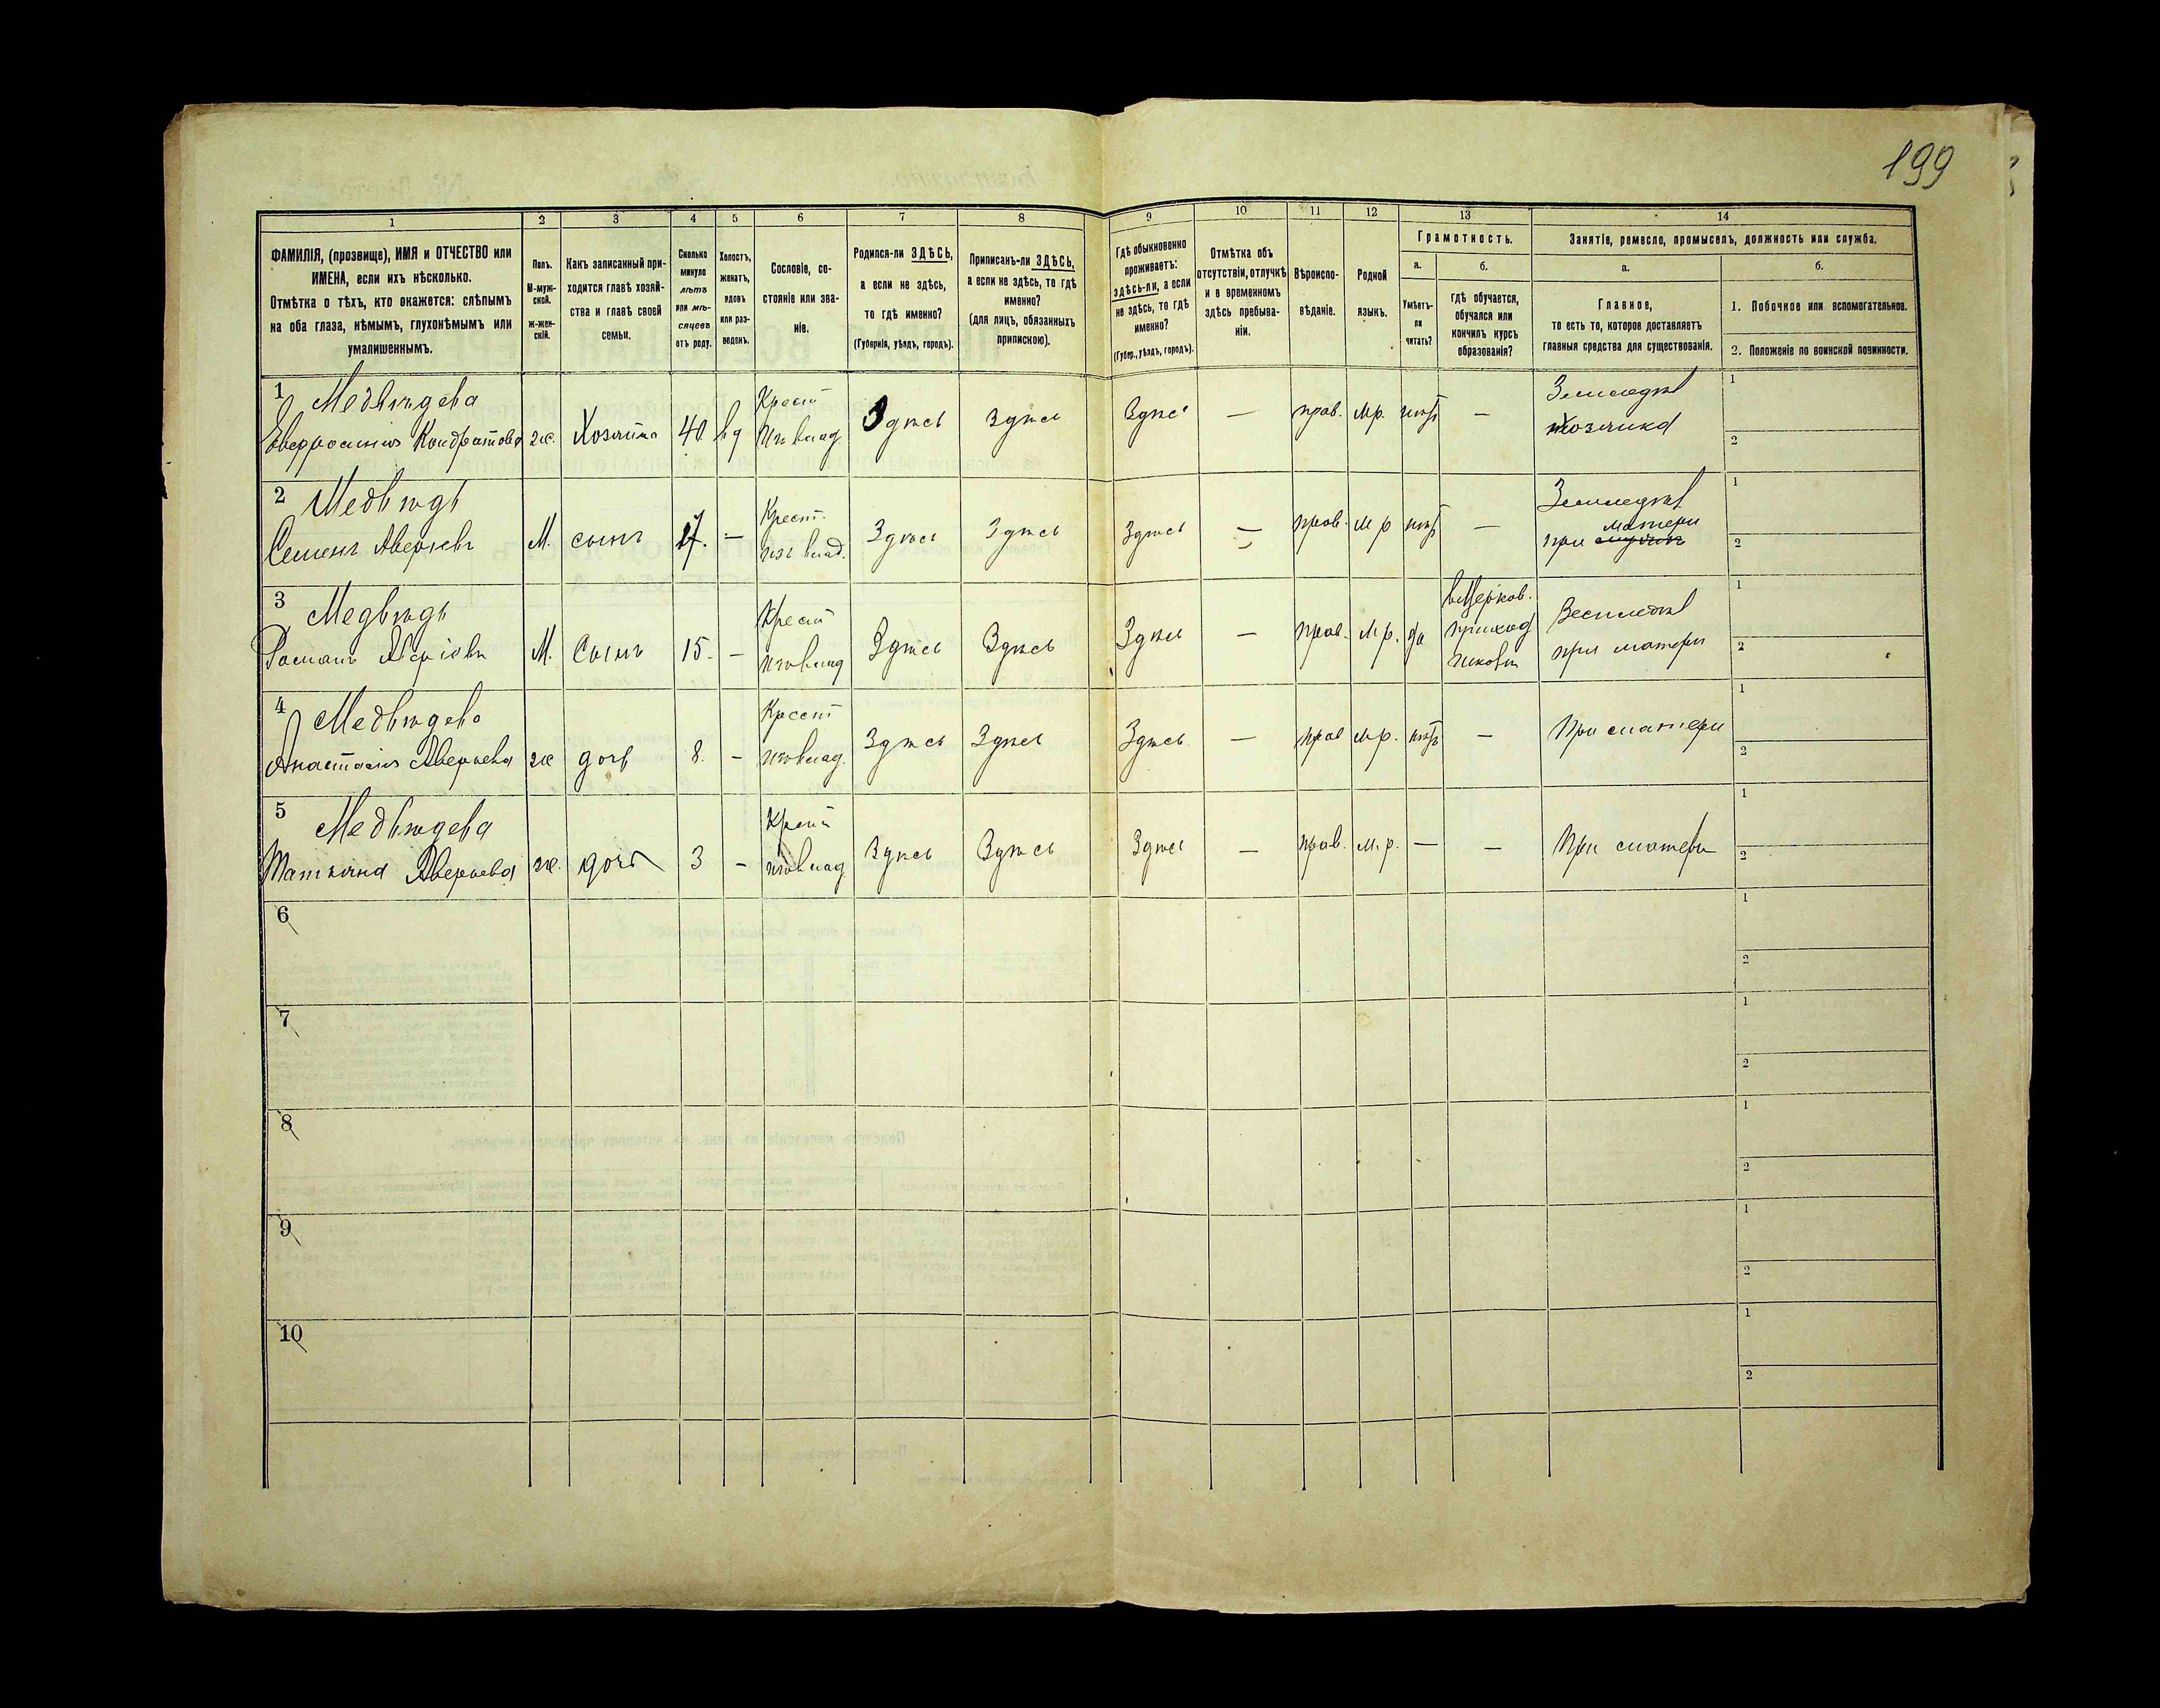 199
1 2 3 4 5 6 7 8 9 10 11 12 13 14
ФАМИЛІЯ, (прозвище), ИМЯ и ОТЧЕСТВО или
ИМЕНА, если ихъ нѣсколько.
Отмѣтка о тѣхъ, кто окажется: слѣпымъ
на оба глаза, нѣмымъ, глухонѣмымъ или
умалишеннымъ.
Полъ.
М-муж-
ской.
Ж-жен-
скій.
Какъ записанный при-
ходится главѣ хозяй-
ства и главѣ своей
семьи.
Сколько
минуло
лѣтъ
или мѣ-
сяцевъ
отъ роду.
Холостъ,
женатъ,
вдовъ
или раз-
веденъ.
Сословіе, со-
стояніе или зва-
ніе.
Родился-ли ЗДѢСЬ,
а если не здѣсь,
то гдѣ именно?
(Губернія, уѣздъ, городъ).
Приписанъ-ли ЗДѢСЬ,
а если не здѣсь, то гдѣ
именно?
(для лицъ, обязанныхъ
припискою).
Гдѣ обыкновенно
проживаетъ:
здѣсь-ли, а если
не здѣсь, то гдѣ
именно?
(Губер., уѣздъ, городъ).
Отмѣтка объ
отсутствіи, отлучкѣ
и о временномъ
здѣсь пребыва-
ніи.
Вѣроиспо-
вѣданіе.
Родной
языкъ.
Грамотность.
а.
Умѣетъ-
ли
читать?
б.
гдѣ обучается,
обучался или
кончилъ курсъ
образованія?
Занятіе, ремесло, промыселъ, должность или служба.
а.
Главное,
то есть то, которое доставляетъ
главныя средства для существованія.
б.
1. Побочное или вспомогательное.
2. Положеніе по воинской повинности.
1 Медвѣдева Крест Земледѣл 1
Евфросинія Кондратова ж. Хозяйка 40 вд изъ влад. Здѣсь Здѣсь Здѣсь — прав. м.р. нѣтъ — хозяйка 2
2 Медвѣдь Крест. Земледѣл 1
матери
Семенъ Аверіевъ М. сынъ 17. — изъ влад. Здѣсь Здѣсь Здѣсь — прав. м р нѣтъ — при 2
3 Медвѣдь Крест въ Церков. Земледѣл 1
Романъ Аверіевъ М. Сынъ 15. — изъ влад Здѣсь Здѣсь Здѣсь — прав. м.р. да приход при матери 2
4 Медвѣдева Крест 1
Анастасія Аверьева ж дочь 8. — изъ влад. Здѣсь Здѣсь Здѣсь — прав м.р. нѣтъ — При матери 2
5 Медвѣдева Крест 1
Татьяна Аверьева ж. дочь 3 — изъ влад Здѣсь Здѣсь Здѣсь — прав. м.р. — — При матери 2
6 1
2
7 1
2
8 1
2
9 1
2
10 1
2